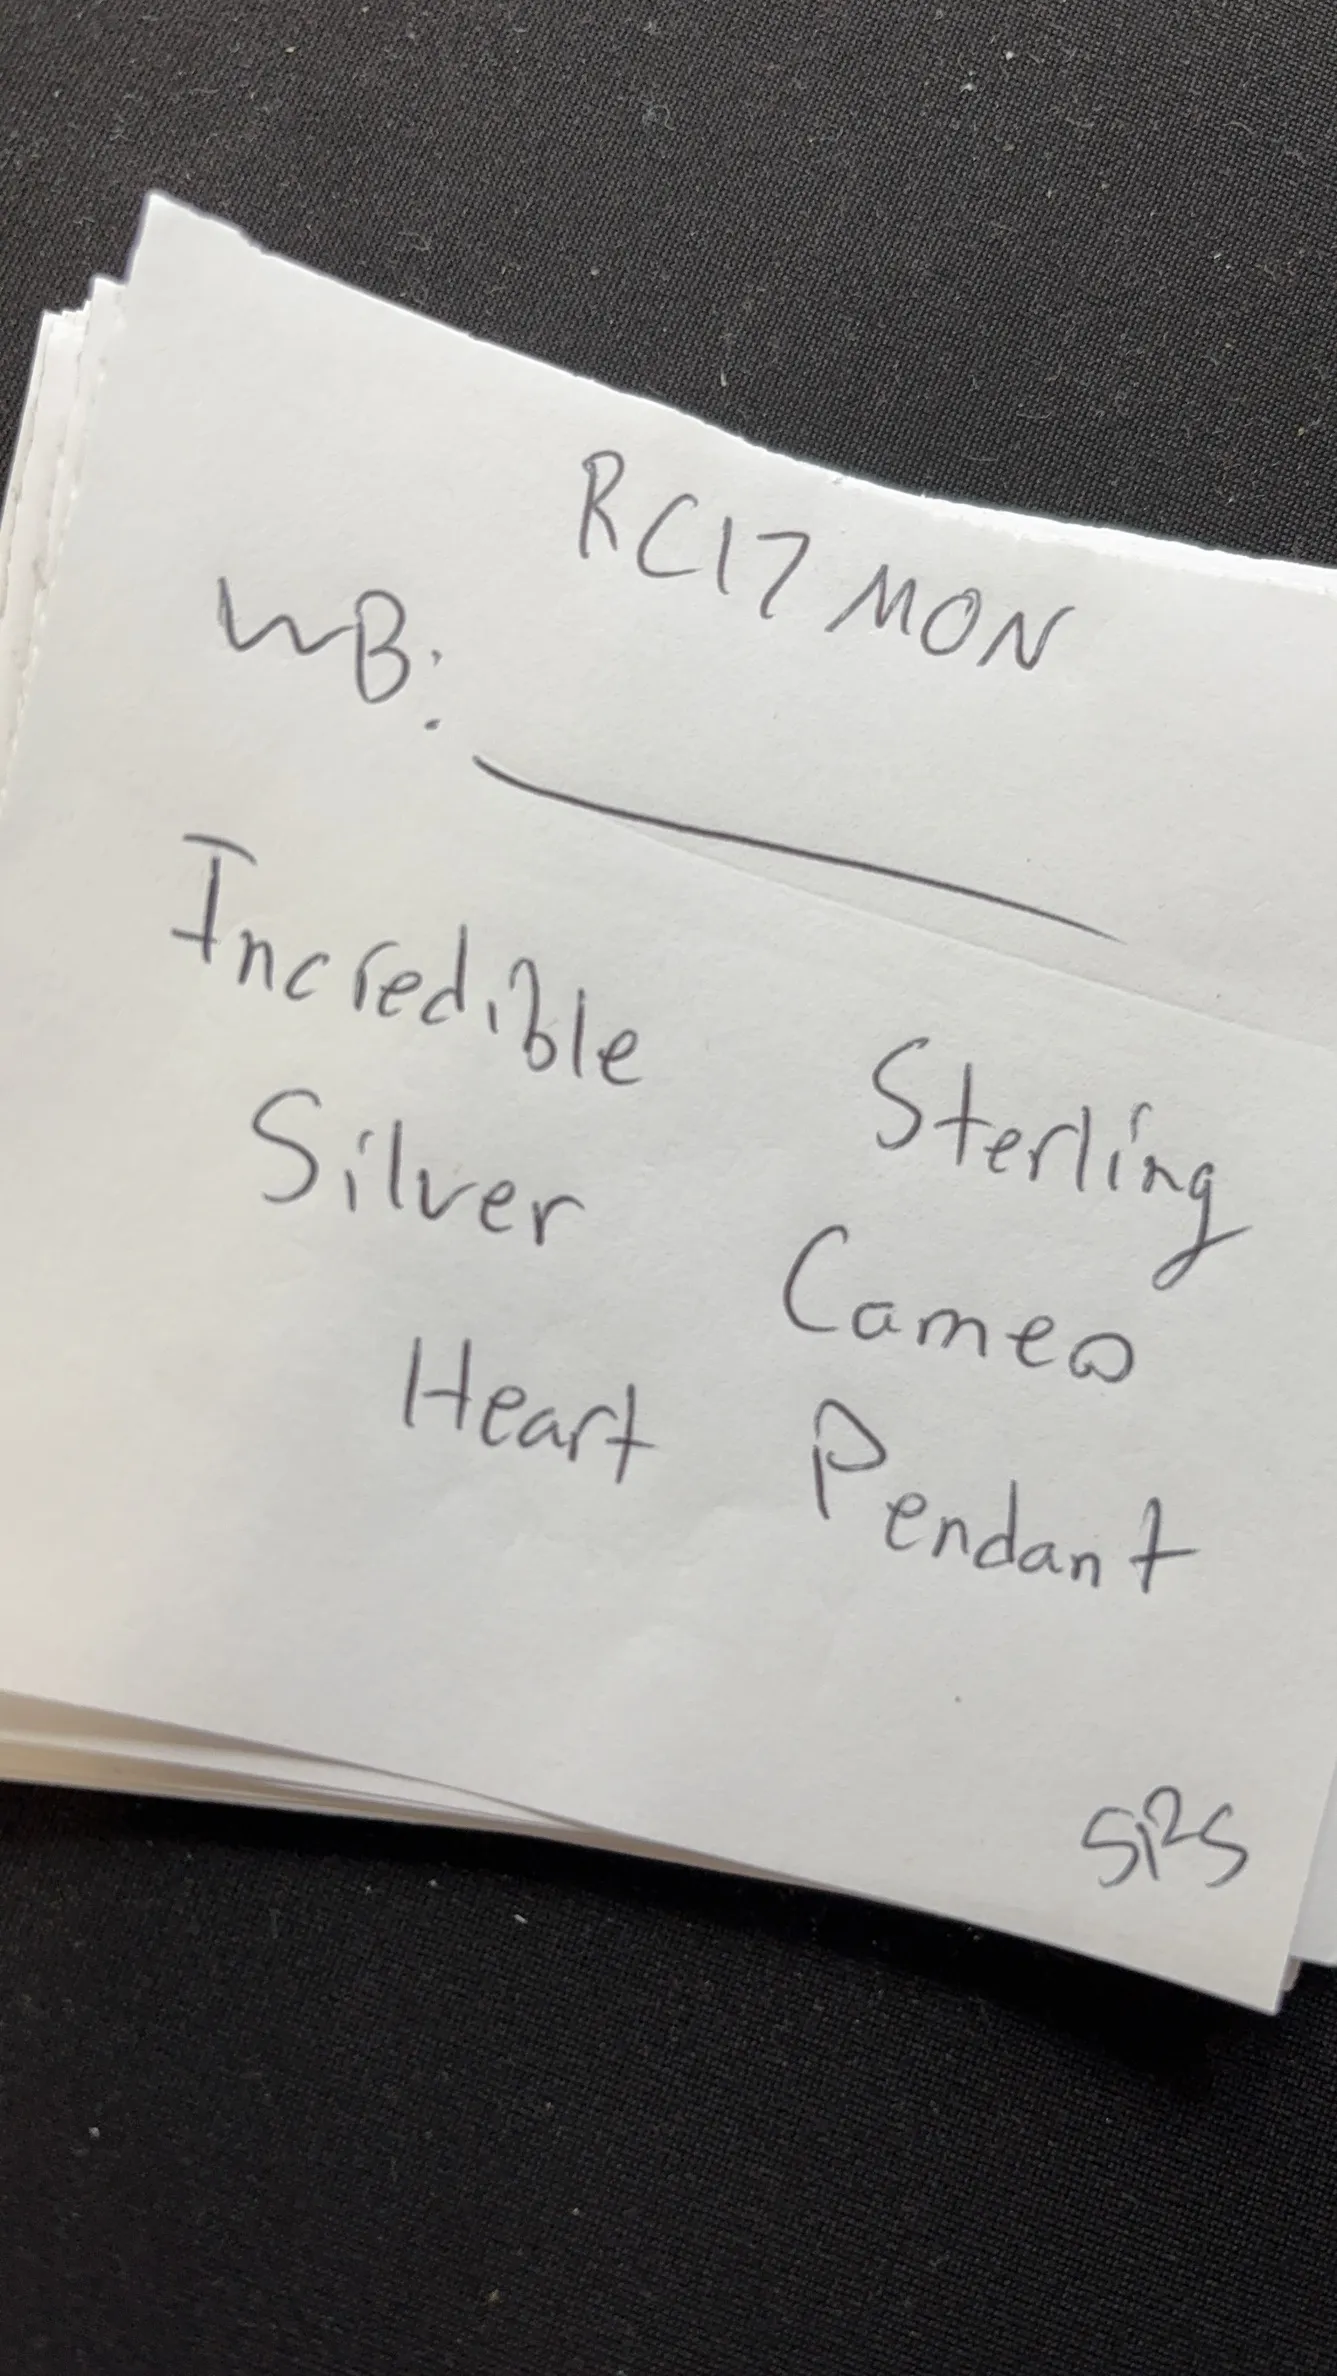 RC17 MON
WB:
Incredible Sterling
Silver Cameo
Heart Pendant